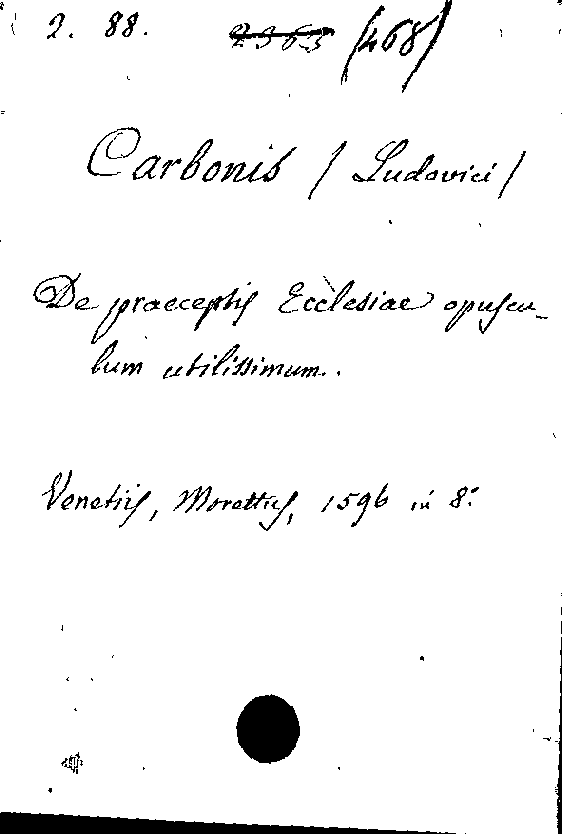 2. 88. 2363 (468)
Carbonis / Ludovici /
De praeceptis Ecclesiae opuscu-
lum utilissimum..
Venetiis, Morettus, 1596 in 8.°